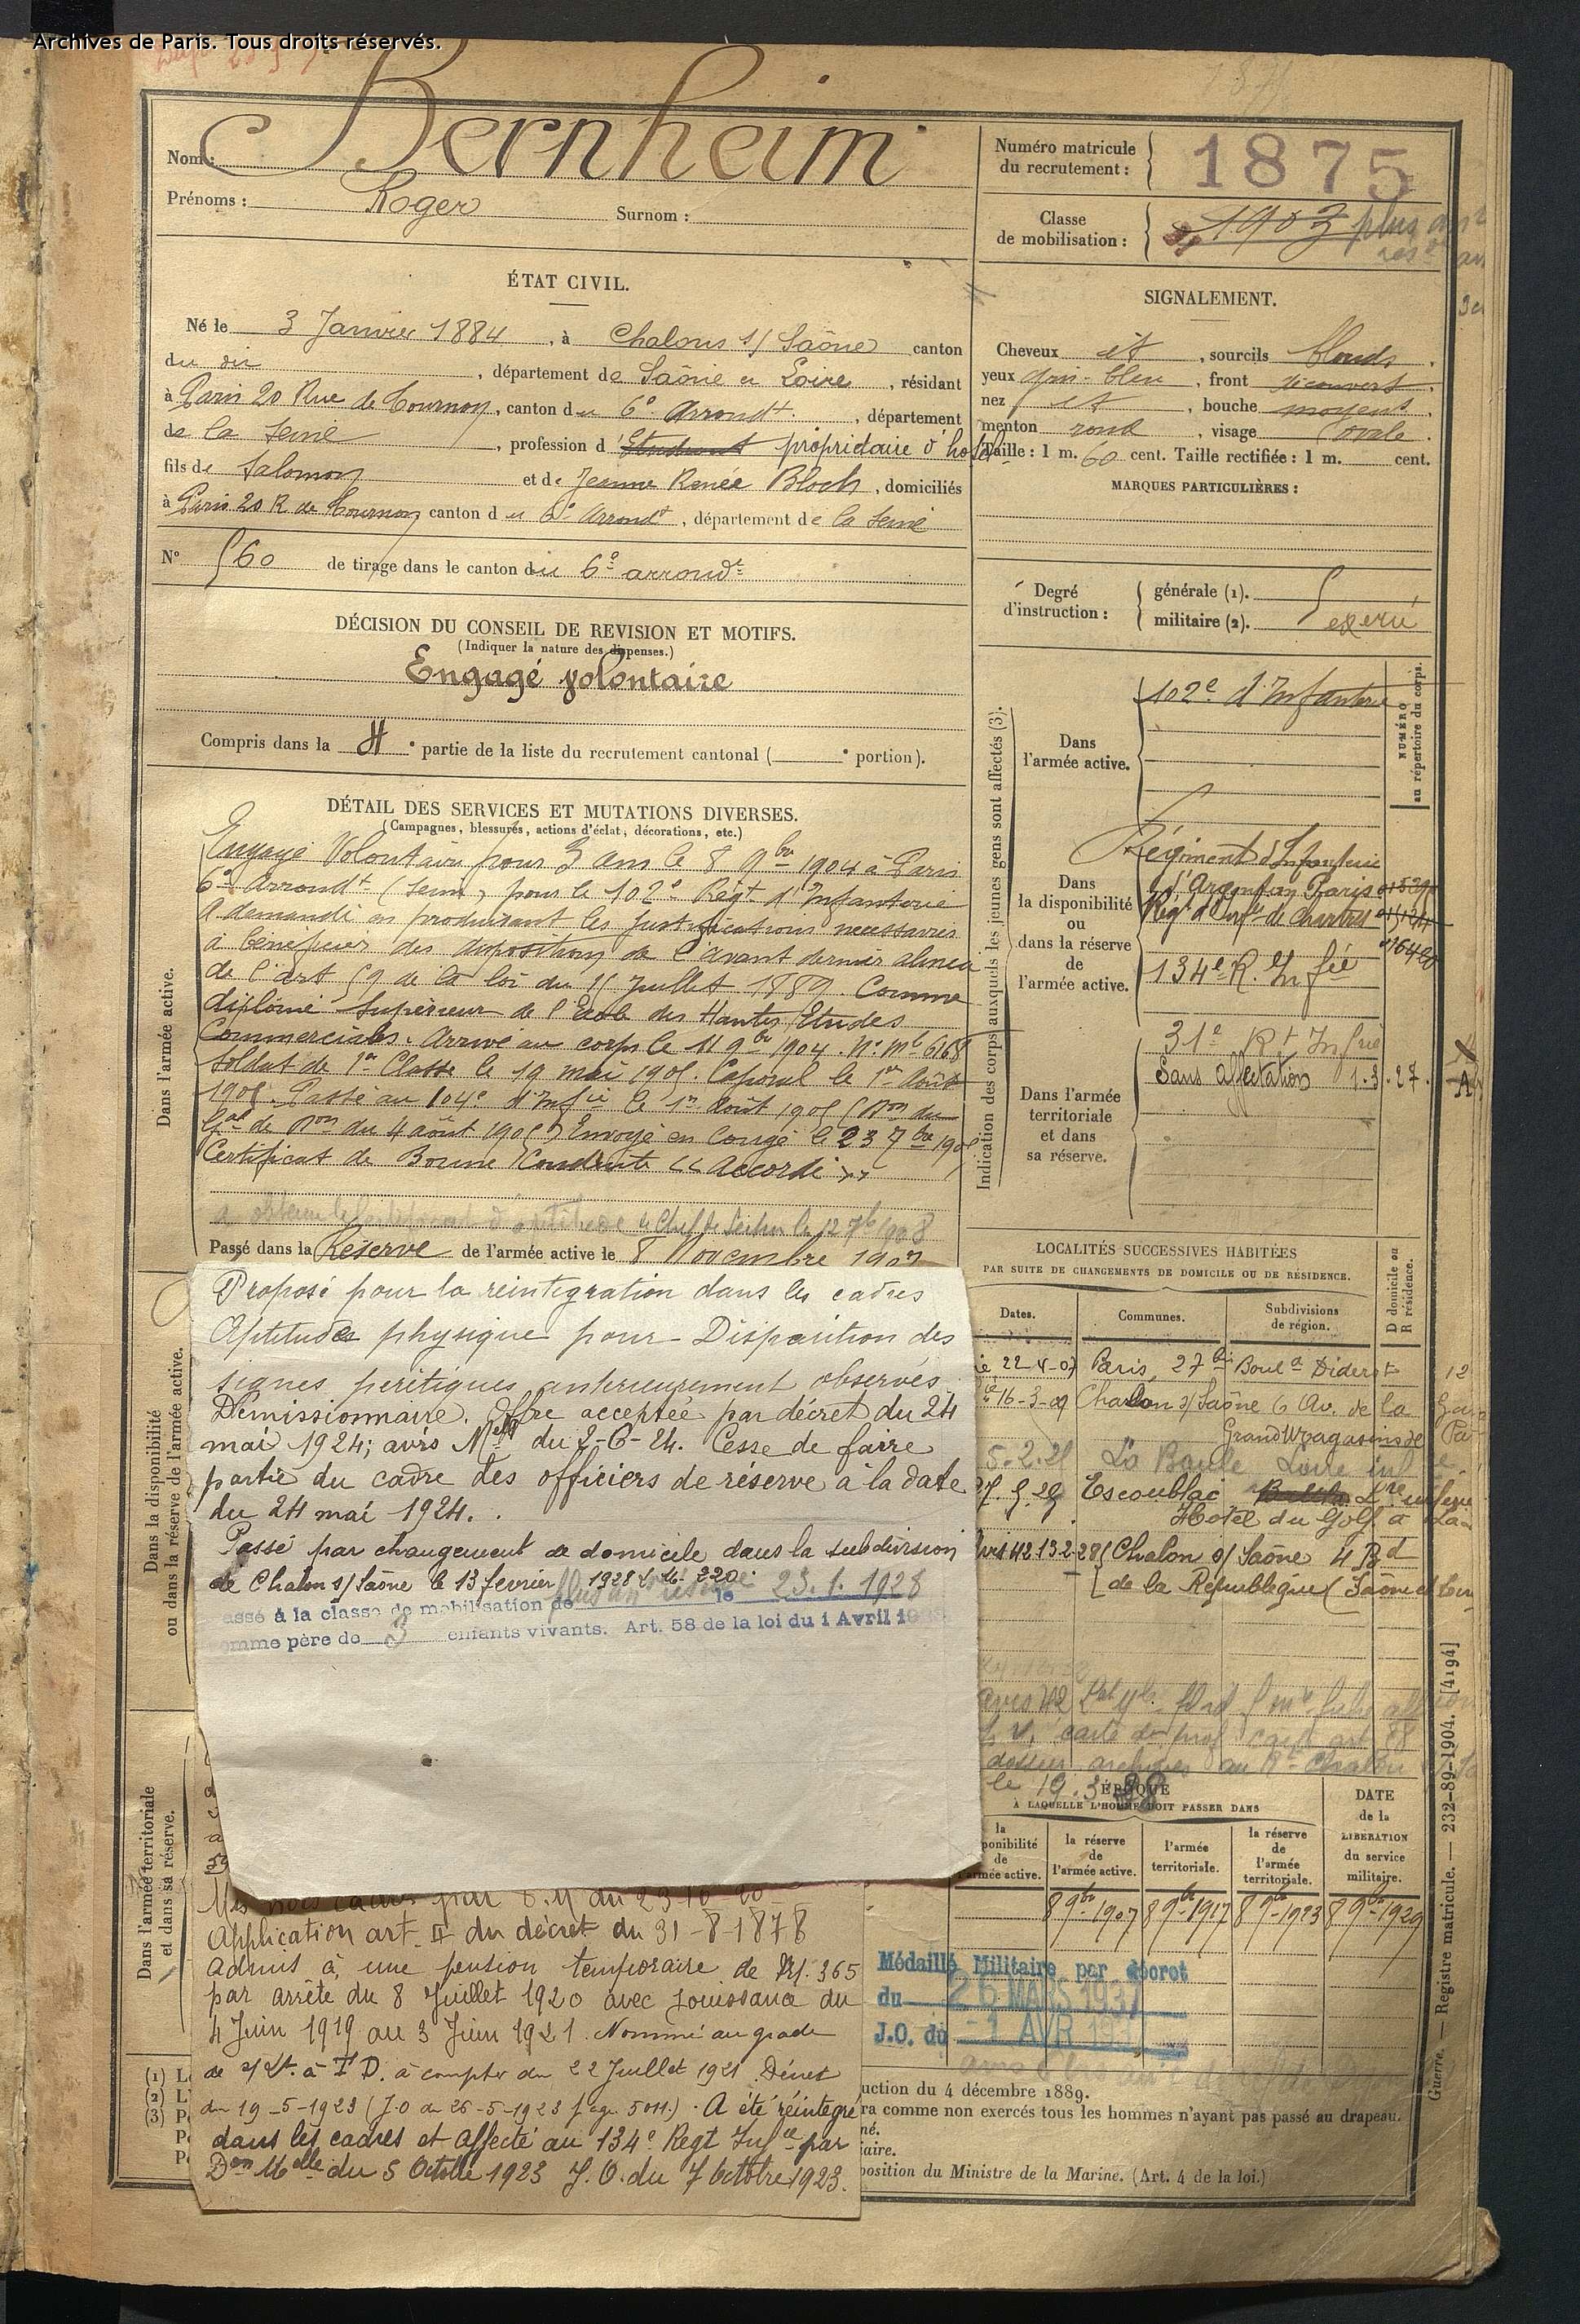 Archives de Paris. Tous droits réservés.
Nom : Bernheim
Prénoms : Roger Surnom :
Numéro matricule
du recrutement : 1875
Classe
de mobilisation : 1903 plus anc
ÉTAT CIVIL.
Né le 3 Janvier 1884, à Chalons s/ Saône canton
du dit, département de Saône et Loire, résidant
à Paris 20 Rue de Tournon, canton du 6e Arrondt., département
de la Seine, profession d'Etudiant propriétaire d'hotel
fils de Salomon et de Jeanne Renée Bloch, domiciliés
à Paris 20 R de Tournon canton du 6e Arrondt, département de la Seine
N° 560 de tirage dans le canton du 6e arrondt
SIGNALEMENT.
Cheveux et, sourcils blonds.
yeux gris-bleu, front découvert,
nez et, bouche moyenne,
menton rond, visage ovale.
Taille : 1 m. 60 cent. Taille rectifiée : 1 m. cent.
MARQUES PARTICULIÈRES :
Degré
d'instruction :
générale (1). 5
militaire (2). exercé
DÉCISION DU CONSEIL DE REVISION ET MOTIFS.
(Indiquer la nature des dispenses.)
Engagé volontaire
Compris dans la 4e partie de la liste du recrutement cantonal ( e portion).
DÉTAIL DES SERVICES ET MUTATIONS DIVERSES.
(Campagnes, blessures, actions d'éclat, décorations, etc.)
Dans l'armée active.
Engagé Volontaire pour 3 ans le 8 9bre 1904 à Paris
6e Arrondt (Seine) pour le 102e Régt d'Infanterie
A demandé en produisant les justifications necessaires
à bénéficier des dispositions de l'avant dernier alinea
de l'art 59 de la loi du 15 Juillet 1889. Comme
diplômé Supérieur de l'Ecole des Hautes Etudes
Commerciales. Arrivé au corps le 11 9bre 1904. N° Mle 6168
Soldat de 1re Classe le 19 mai 1905. Caporal le 1er Août
1905. Passé au 104e d'Infie le 1er Août 1905 (Don du
Gal de Don du 4 août 1905) Envoyé en Congé le 23 7bre 1905
Certificat de Bonne Conduite « Accordé »
a obtenu le certificat d'aptitude de Chef de Section le 12 7bre 1908
Passé dans la Réserve de l'armée active le 8 Novembre 1907
Indication des corps auxquels les jeunes gens sont affectés (3).
NUMÉRO
au répertoire du corps.
Dans
l'armée active.
102e d'Infanterie
Dans
la disponibilité
ou
dans la réserve
de
l'armée active.
Régiment d'Infanterie
d'Argentan Paris
Régt d'Infie de Chartres
134e R. Infie
Dans l'armée
territoriale
et dans
sa réserve.
31e Rt Infie
Sans affectation 1.3.27.
Dans la disponibilité
ou dans la réserve de l'armée active.
Proposé pour la reintegration dans les cadres
Aptitude physique pour - Disparition des
signes
antérieurement observés.
Démissionnaire. Offre acceptée par décret du 24
mai 1924; avis Mel du 2-6-24. Cesse de faire
partie du cadre des officiers de réserve à la date
du 24 mai 1924.
Passé par changement de domicile dans la subdivision
de Chalon s/ Saône le 13 fevrier 1928
Passé à la classe de mobilisation de plus anc le 23.1.1928
comme père de 3 enfants vivants. Art. 58 de la loi du 1 Avril 19
LOCALITÉS SUCCESSIVES HABITÉES
PAR SUITE DE CHANGEMENTS DE DOMICILE OU DE RÉSIDENCE.
Dates. Communes. Subdivisions
de région. D domicile ou
R résidence.
22-4-07 Paris, 27 bis Bould Diderot
16-3-09 Chalon s/ Saône 6 Av. de la Gare
Grand Magasins de
5.2.21 La Baule Loire inf
Escoublac Lre inferie
Hotel du Golf à La
13-2-28 Chalon s/ Saône 4 Bd
de la République (Saône et Loire
le 19.3.38
ÉPOQUE
À LAQUELLE L'HOMME DOIT PASSER DANS
la
disponibilité
de
l'armée active.
la réserve
de
l'armée active.
l'armée
territoriale.
la réserve
de
l'armée
territoriale.
DATE
de la
LIBÉRATION
du service
militaire.
8 9bre 1907 8 9bre 1917 8 9bre 1923 8 9bre 1929
Dans l'armée territoriale
et dans sa réserve.
Mis hors cadres par D.M du 23-10-20
Application art. II du décret du 31-8-1878
Admis à une pension temporaire de 365
par arrêté du 8 Juillet 1920 avec jouissance du
4 Juin 1919 au 3 Juin 1921. Nommé au grade
de s/Lt. à T.D. à compter du 22 Juillet 1921. Décret
du 19-5-1923 (J.O du 26-5-1923 page 5011). A été réintégré
dans les cadres et affecté au 134e Régt Infie par
Don Melle du 5 Octobre 1923 J.O. du 7 Octobre 1923.
Médaillé Militaire par décret
du 26 MARS 1937
J.O. du 1 AVR 193
uction du 4 décembre 1889.
ra comme non exercés tous les hommes n'ayant pas passé au drapeau.
né.
aire.
position du Ministre de la Marine. (Art. 4 de la loi.)
Guerre. — Registre matricule. — 232-89-1904. [4194]